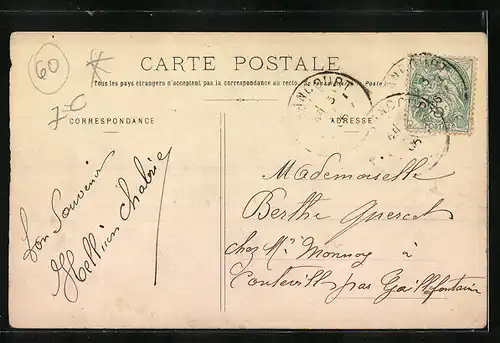 60
7-C
CARTE POSTALE
Tous les pays étrangers n'acceptent pas la correspondance au recto
Poste)
CORRESPONDANCE
ADRESSE
ANCOURT
Bon Souvenir
Mademoiselle
Berthe Quercot
chez Mr Monnoy à
Conteville par Gaillefontaine